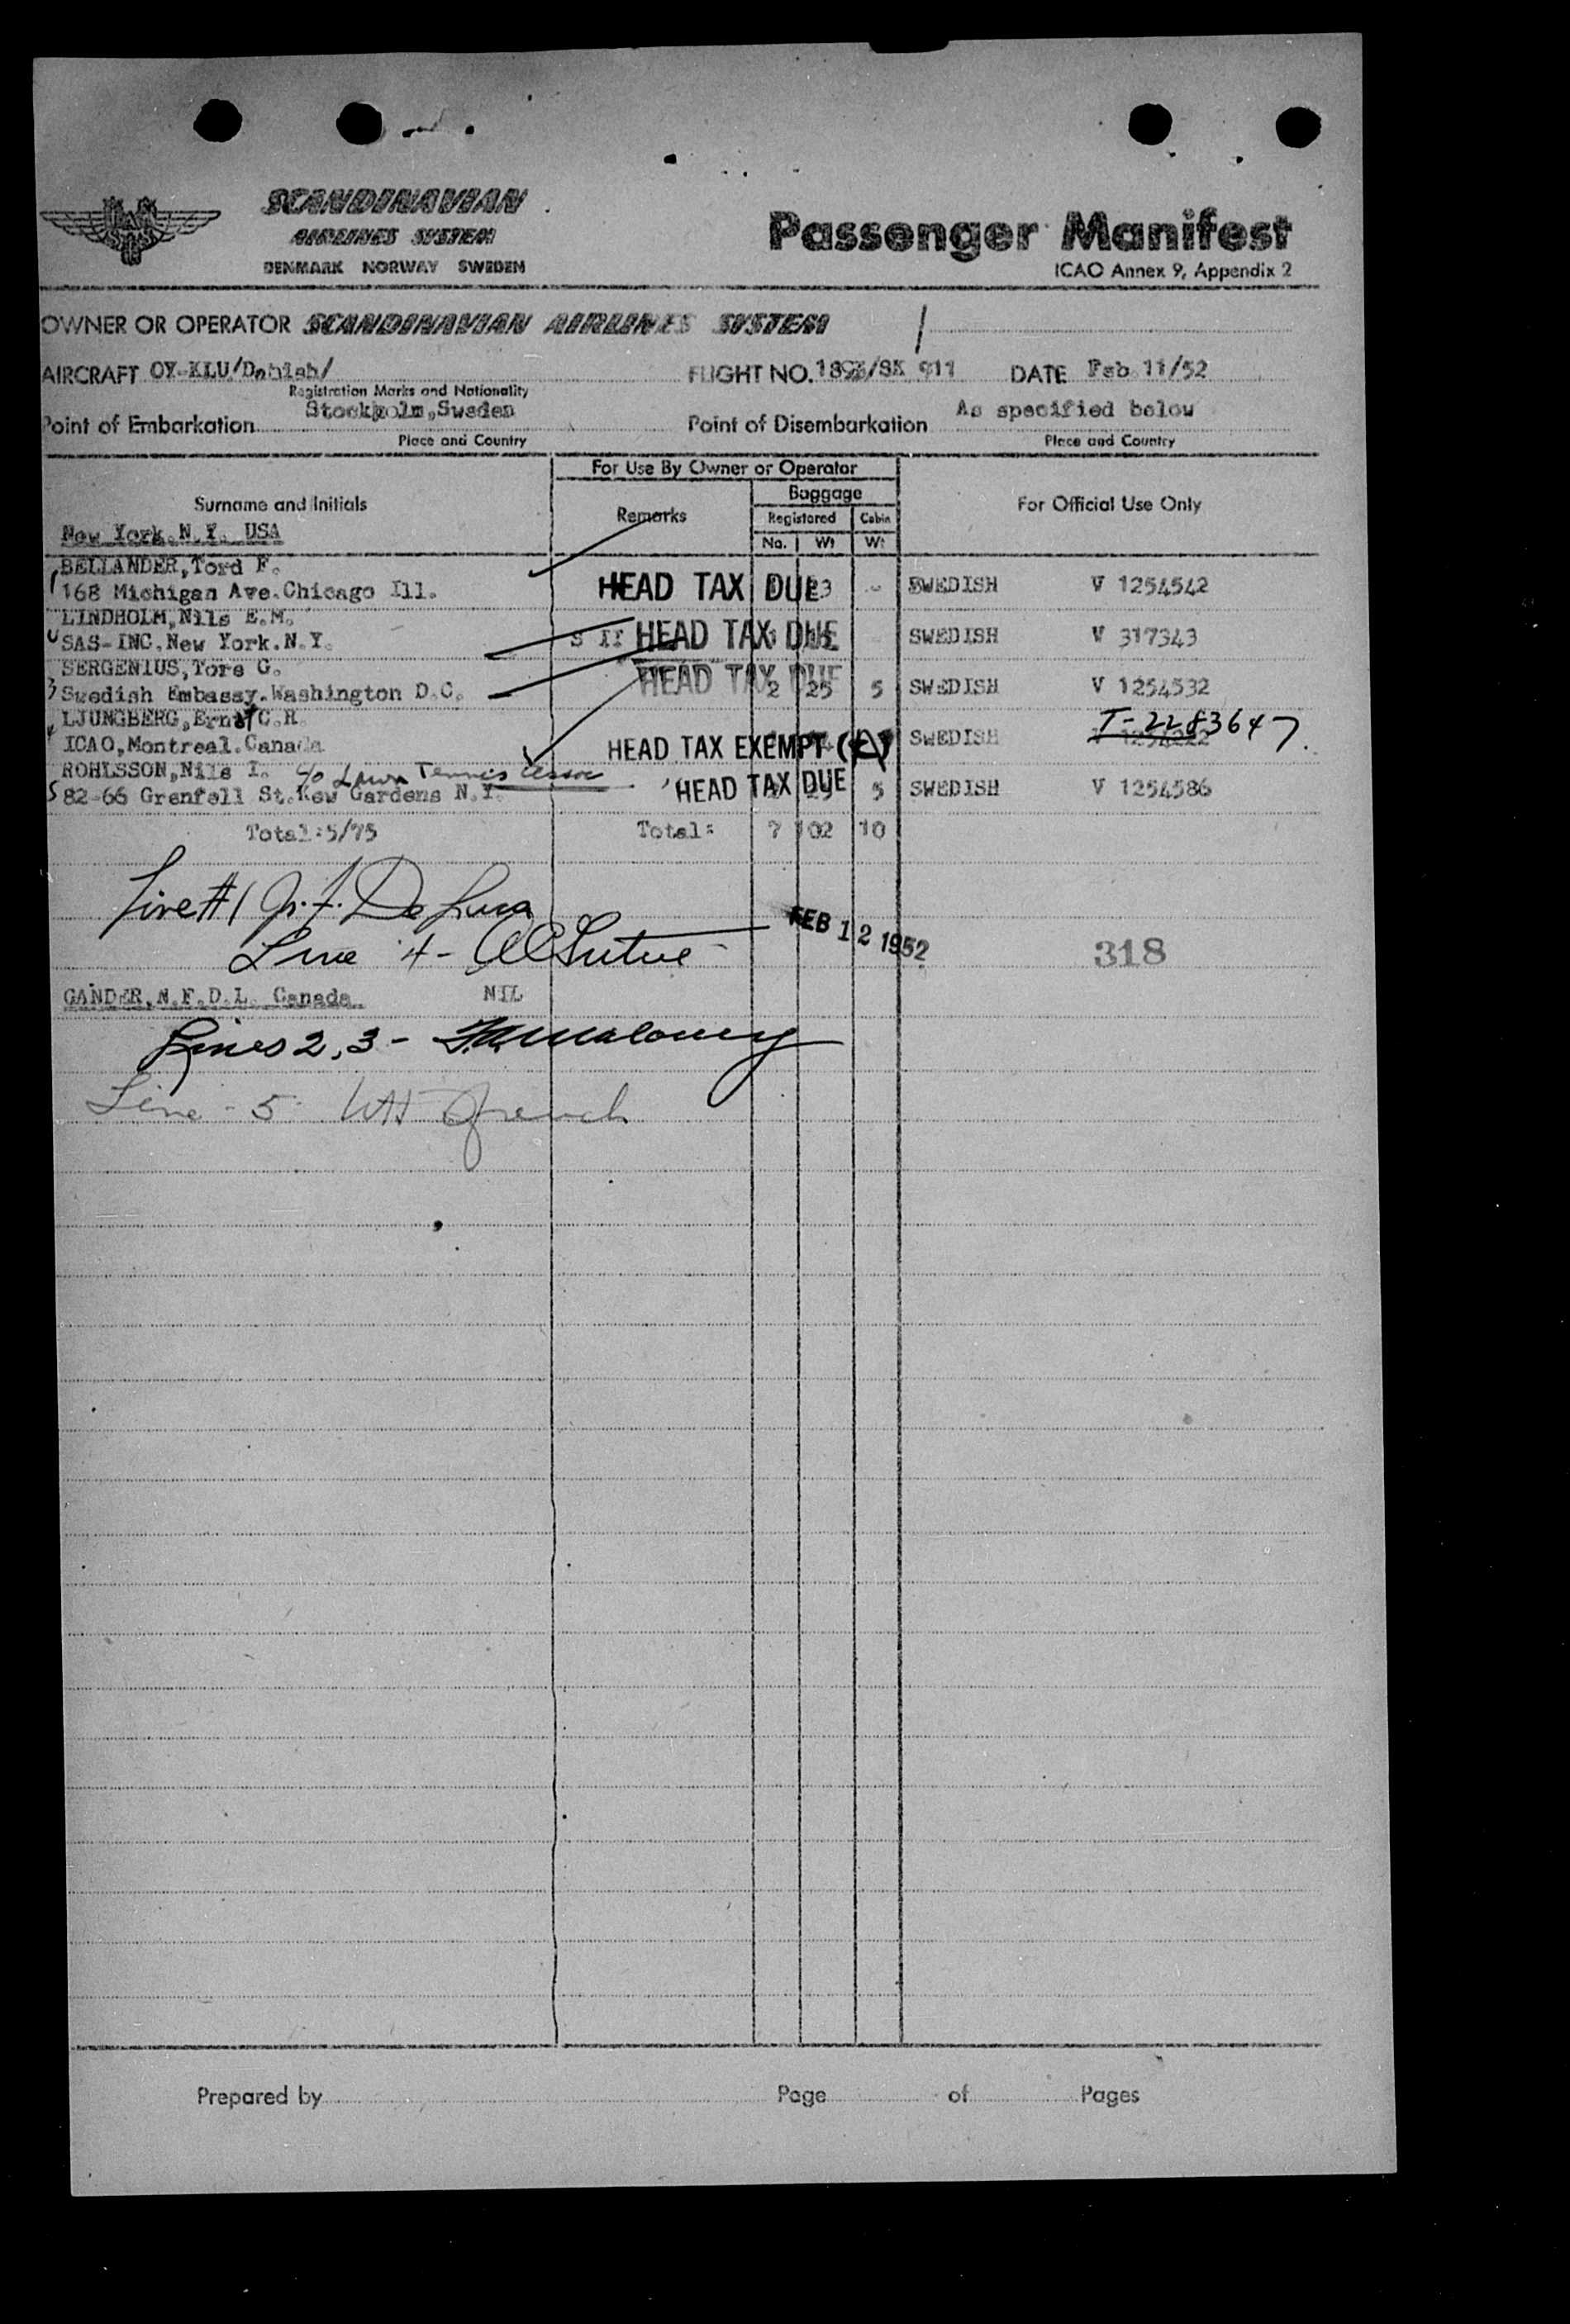 SCANDINAVIAN
AIRLINES SYSTEM
DENMARK NORWAY SWEDEN
Passenger Manifest
ICAO Annex 9, Appendix 2
OWNER OR OPERATOR SCANDINAVIAN AIRLINES SYSTEM
AIRCRAFT OY-KLU/Danish/ FLIGHT NO. SK 911 DATE Feb 11/52
Registration Marks and Nationality
Point of Embarkation Stockholm,Sweden Point of Disembarkation As specified below
Place and Country Place and Country
For Use By Owner or Operator
Surname and Initials Remarks Baggage For Official Use Only
Registered Cabin
No. Wt Wt
New York.N.Y. USA
BELLANDER,Tord F.
1 168 Michigan Ave.Chicago Ill. HEAD TAX DUE SWEDISH V 1254542
LINDHOLM,Nils E.M.
SAS-INC.New York.N.Y. S II HEAD TAX DUE SWEDISH V 317343
SERGENIUS,Tore G.
3 Swedish Embassy.Washington D.C. HEAD TAX DUE 2 25 5 SWEDISH V 1254532
LJUNGBERG,Ernst C.R. T-2283647.
4 ICAO,Montreal.Canada HEAD TAX EXEMPT SWEDISH
ROHLSSON,Nils I. c/o Lawn Tennis Assoc
5 82-66 Grenfell St.Kew Gardens N.Y. HEAD TAX DUE 5 SWEDISH V 1254586
Total:5/75 Total: 7 102 10
Line #1
Line 4 -
FEB 12 1952
318
GANDER,N.F.D.L. Canada NIL
Lines 2, 3 - Maloney
Line - 5 French
Prepared by Page of Pages